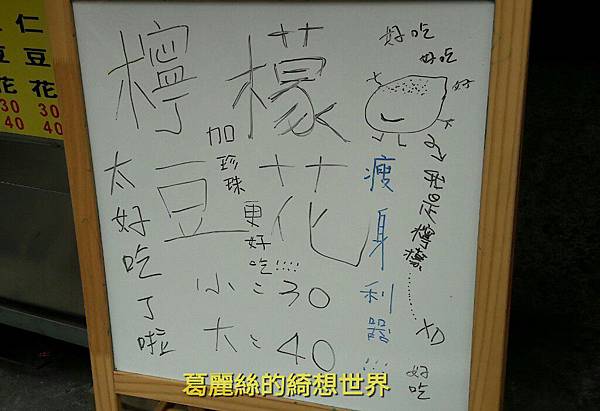 仁
豆 豆
花 花
30 30
40 40
檸檬
豆花
加珍珠
更好吃!!!!
太好吃了啦
小:30
大:40
瘦身利器!!!
好吃
好吃
好
我是檸檬……XD
好吃
葛麗絲的綺想世界